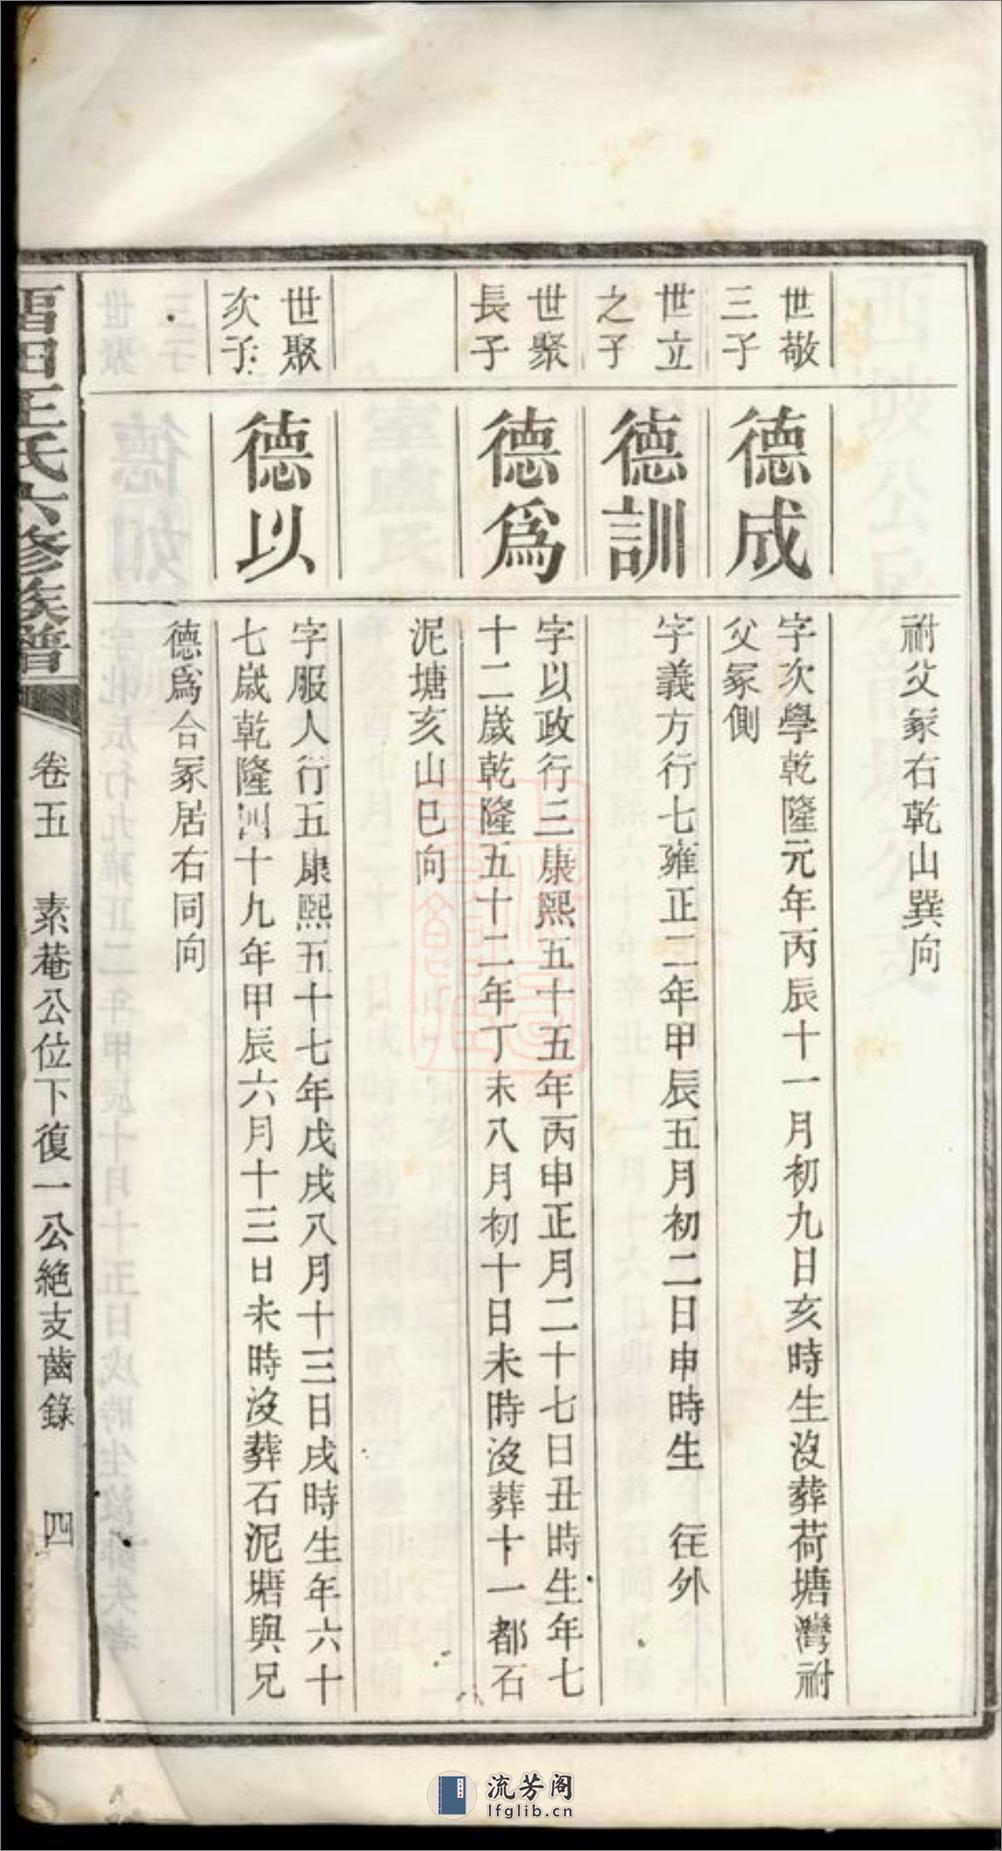 祔父冢右乾山巽向
世敬
三子
德成
字次學乾隆元年丙辰十一月初九日亥時生沒葬荷塘灣祔
父冢側
世立
之子
德訓
字義方行七雍正二年甲辰五月初二日申時生 徃外
世聚
長子
德爲
字以政行三康熙五十五年丙申正月二十七日丑時生年七
十二歲乾隆五十二年丁未八月初十日未時沒葬十一都石
泥塘亥山巳向
世聚
次子
德以
字服人行五康熙五十七年戊戌八月十三日戌時生年六十
七歲乾隆四十九年甲辰六月十三日未時沒葬石泥塘與兄
德爲合冢居右同向
田王氏六修族譜
卷五 素菴公位下復一公絶支齒錄 四
流芳阁
lfglib.cn